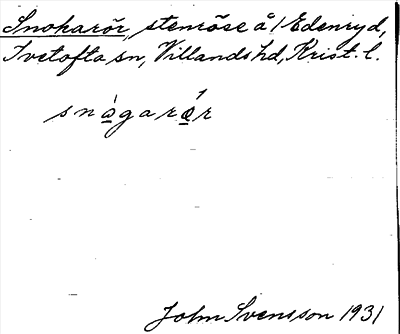 Snokarör, stenröse å 1 Edenryd,
Ivetofta sn, Villands hd, Krist. l.
snàgarǿr
John Svensson 1931